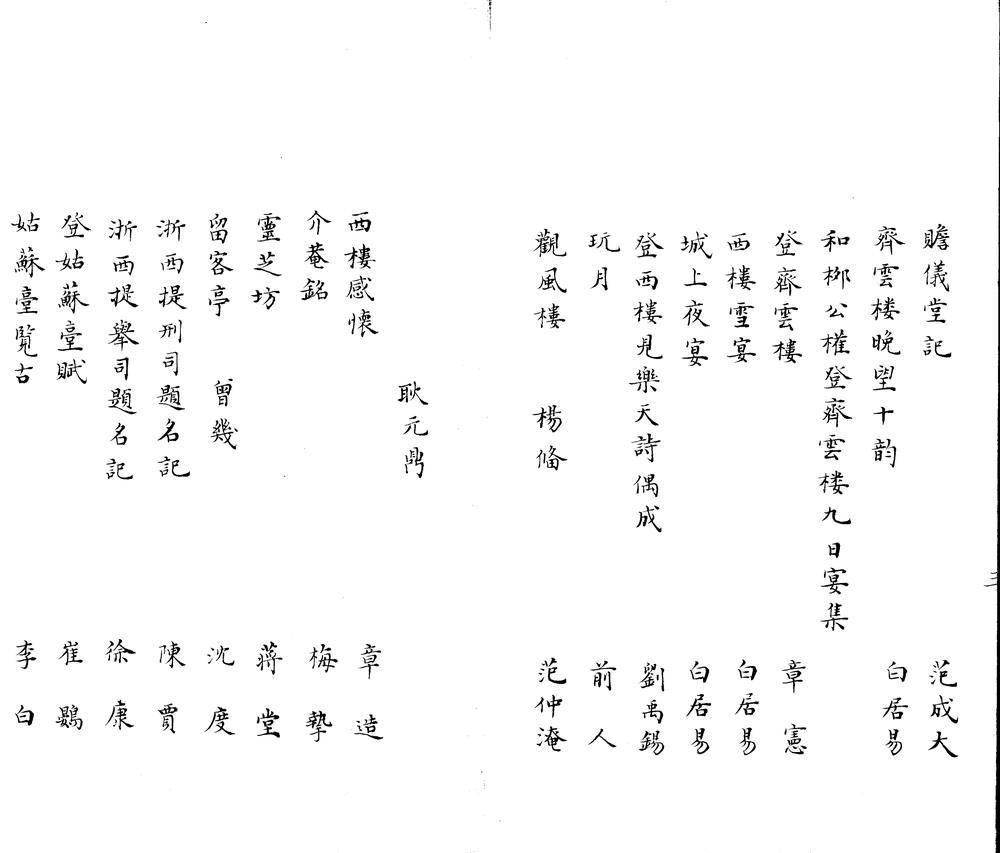 瞻儀堂記　范成大
齊雲楼晩望十韵　白居易
和栁公權登齊雲楼九日宴集
登齊雲樓　章憲
西樓雪宴　白居易
城上夜宴　白居易
登西樓見樂天詩偶成　劉禹錫
玩月　前人
觀風樓　楊俻　范仲淹
耿元鼎
西樓感懷　章造
介菴銘　梅摯
靈芝坊　蔣堂
留客亭　曾幾　沈度
浙西提刑司題名記　陳賈
浙西提舉司題名記　徐康
登姑蘇臺賦　崔鷃
姑蘇臺覽古　李白